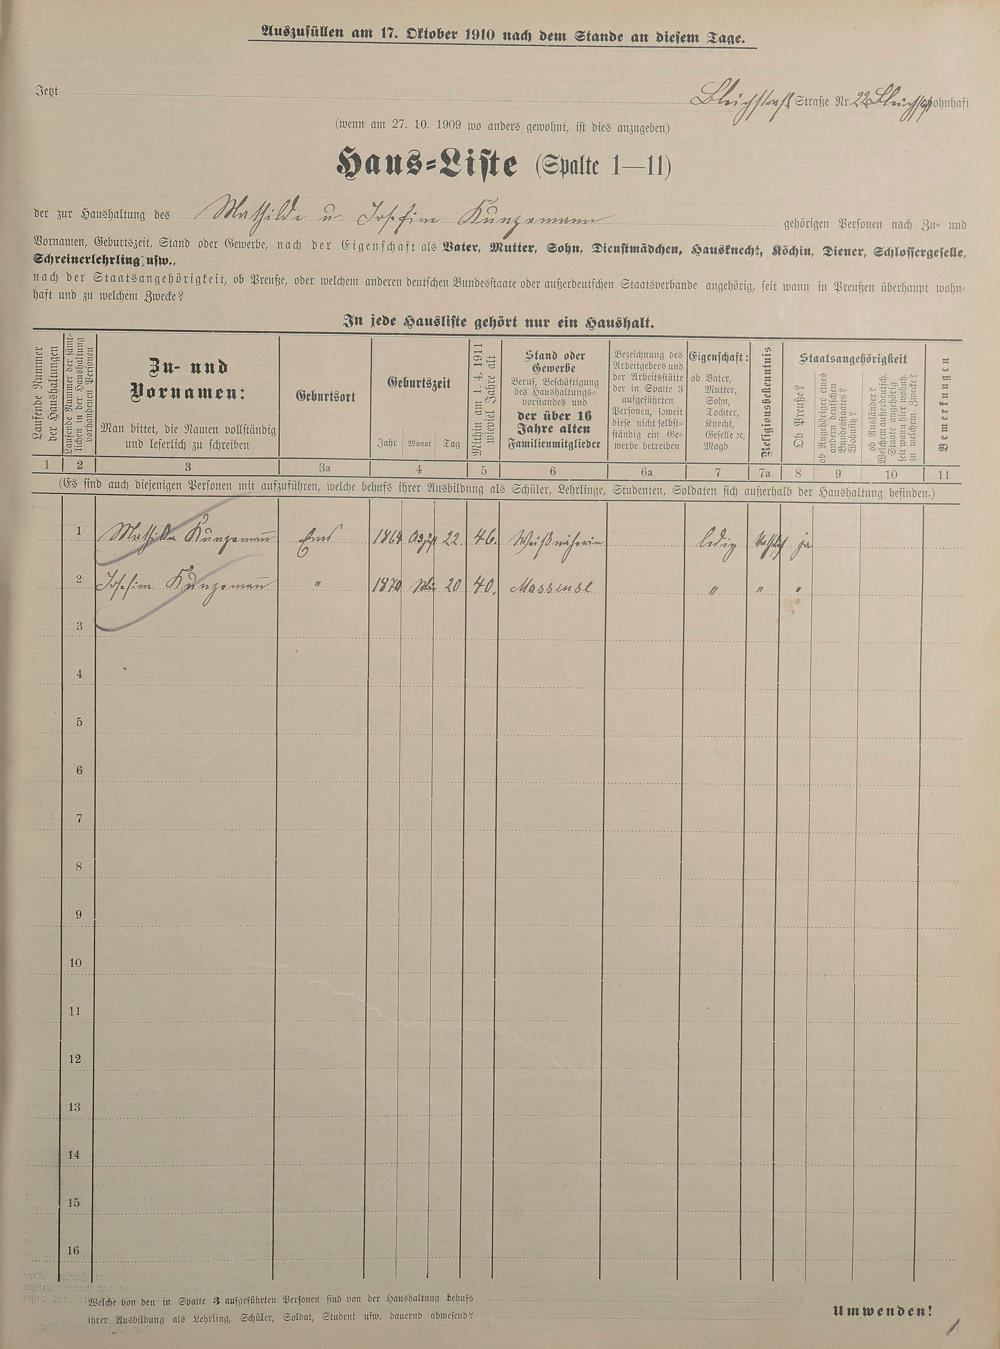 Auszufüllen am 17. Oktober 1910 nach dem Stande an diesem Tage.
Jetzt Bleichstraß Straße Nr. 22 wohnhaft
(wenn am 27. 10. 1909 wo anders gewohnt, ist dies anzugeben)
Haus=Liste (Spalte 1—11)
der zur Haushaltung des Mathilde u Josefine Kunzemann gehörigen Personen nach Zu= und
Vornamen, Geburtszeit, Stand oder Gewerbe, nach der Eigenschaft als Vater, Mutter, Sohn, Dienstmädchen, Hausknecht, Köchin, Diener, Schlossergeselle,
Schreinerlehrling usw.,
nach der Staatsangehörigkeit, ob Preuße, oder welchem anderen deutschen Bundesstaate oder außerdeutschen Staatsverbande angehörig, seit wann in Preußen überhaupt wohn=
haft und zu welchem Zwecke?
In jede Hausliste gehört nur ein Haushalt.
Laufende Nummer
der Haushaltungen
Laufende Nummer der sämt=
lichen in der Haushaltung
vorhandenen Personen
Zu= und
Vornamen:
Man bittet, die Namen vollständig
und leserlich zu schreiben
Geburtsort
Geburtszeit
Jahr Monat Tag
Mithin am 1. 4. 1911
wieviel Jahre alt
Stand oder
Gewerbe
Beruf, Beschäftigung
des Haushaltungs=
vorstandes und
der über 16
Jahre alten
Familienmitglieder
Bezeichnung des
Arbeitgebers und
der Arbeitsstätte
der in Spalte 3
aufgeführten
Personen, soweit
diese nicht selbst=
ständig ein Ge=
werbe betreiben
Eigenschaft:
ob Vater,
Mutter,
Sohn,
Tochter,
Knecht,
Geselle ec,
Magd
Religionsbekenntnis
Staatsangehörigkeit
Ob Preuße?
ob Angehöriger eines
andern deutschen
Bundesstaates?
Wohnsitz?
ob Ausländer?
Welchem außerdeutsch.
Staate angehörig
seit wann hier wohnh.
zu welchem Zwecke?
Bemerkungen
1 2 3 3a 4 5 6 6a 7 7a 8 9 10 11
(Es sind auch diejenigen Personen mit aufzuführen, welche behufs ihrer Ausbildung als Schüler, Lehrlinge, Studenten, Soldaten sich außerhalb der Haushaltung befinden.)
1 Mathilde Kunzemann Ems 1864 22. 46. Weißnäherin ledig kathol ja
2 Josefine Kunzemann " 1870 20 40. " " "
3
4
5
6
7
8
9
10
11
12
13
14
15
16
Welche von den in Spalte 3 aufgeführten Personen sind von der Haushaltung behufs
ihrer Ausbildung als Lehrling, Schüler, Soldat, Student usw. dauernd abwesend?
Umwenden!
1